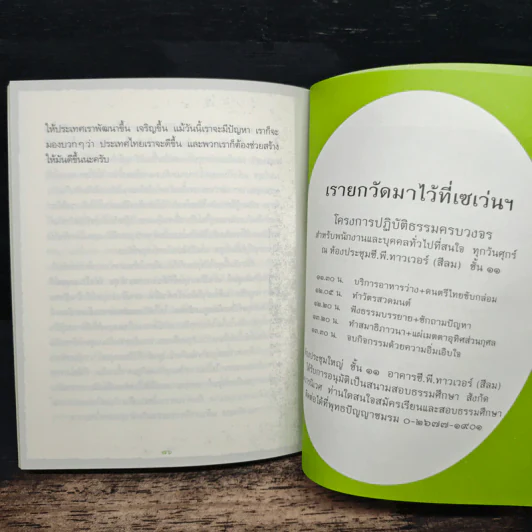 ให้ประเทศเราพัฒนาขึ้น เจริญขึ้น แม้วันนี้เราจะมีปัญหา เราก็จะ
มองบวกๆว่า ประเทศไทยเราจะดีขึ้น และพวกเราก็ต้องช่วยสร้าง
ให้มันดีขึ้นนะครับ
เรายกวัดมาไว้ที่เซเว่นฯ
โครงการปฏิบัติธรรมครบวงจร
สำหรับพนักงานและบุคคลทั่วไปที่สนใจ ทุกวันศุกร์
ณ ห้องประชุมซี.พี.ทาวเวอร์ (สีลม) ชั้น ๑๑
น. บริการอาหารว่าง+ดนตรีไทยขับกล่อม
๑๒.๐๕ น. ทำวัตรสวดมนต์
๑๒.๒๐ น. ฟังธรรมบรรยาย+ซักถามปัญหา
๑๓.๒๐ น. ทำสมาธิภาวนา+แผ่เมตตาอุทิศส่วนกุศล
๑๓.๓๐ น. จบกิจกรรมด้วยความอิ่มเอิบใจ
ประชุมใหญ่ ชั้น ๑๑ อาคารซี.พี.ทาวเวอร์ (สีลม)
ได้รับการอนุมัติเป็นสนามสอบธรรมศึกษา สังกัด
ท่านใดสนใจสมัครเรียนและสอบธรรมศึกษา
ติดต่อได้ที่พุทธปัญญาชมรม ๐-๒๖๗๗-๑๙๐๑